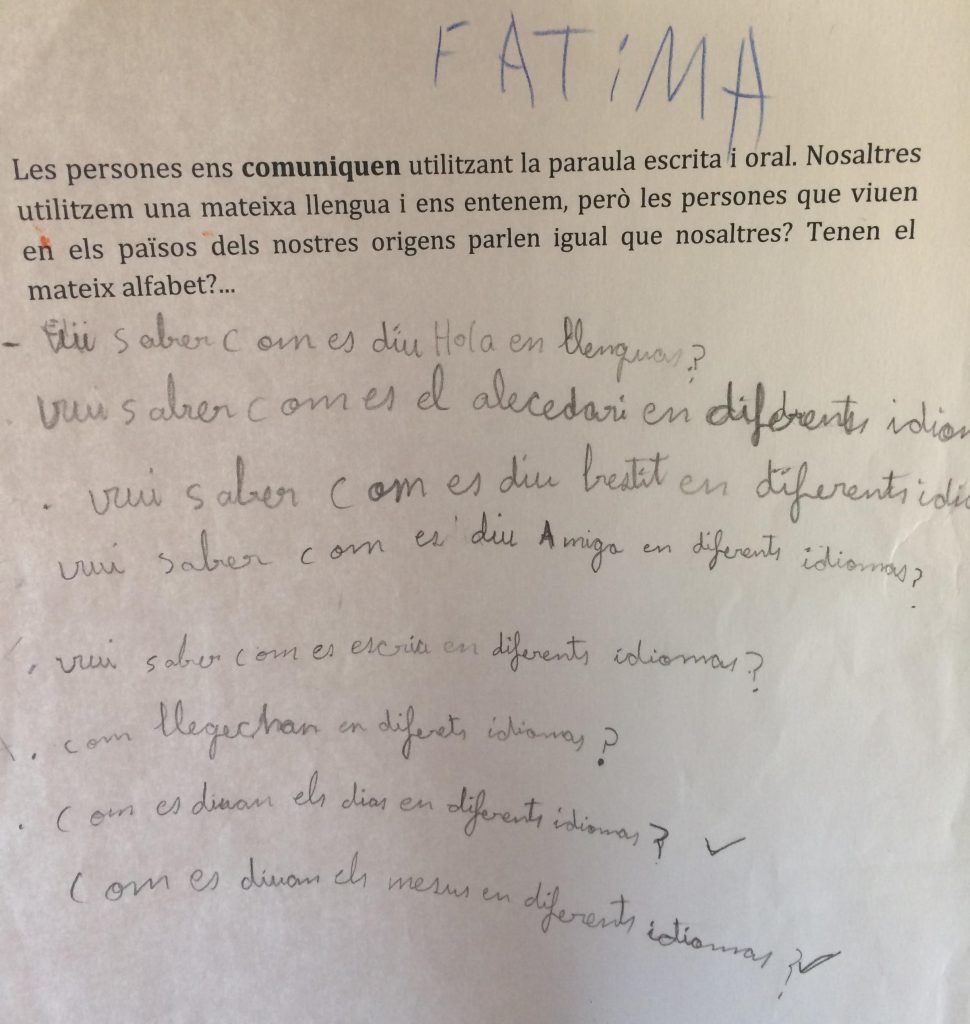 FATiMA
Les persones ens comuniquen utilitzant la paraula escrita i oral. Nosaltres
utilitzem una mateixa llengua i ens entenem, però les persones que viuen
en els països dels nostres orígens parlen igual que nosaltres? Tenen el
mateix alfabet?...
- saber com es diu Hola en llenguas?
vuui saber com es el alecedari en diferents idiom
. vuui saber com es diu brestit en diferents idi
vuui saber com es diu Amiga en diferents idiomas?
. vuui saber com es escria en diferents idiomas?
. com llegechan en diferets idiomas?
. Com es diuan els dias en diferents idiomas?
Com es diuan els mesus en diferents idiomas?